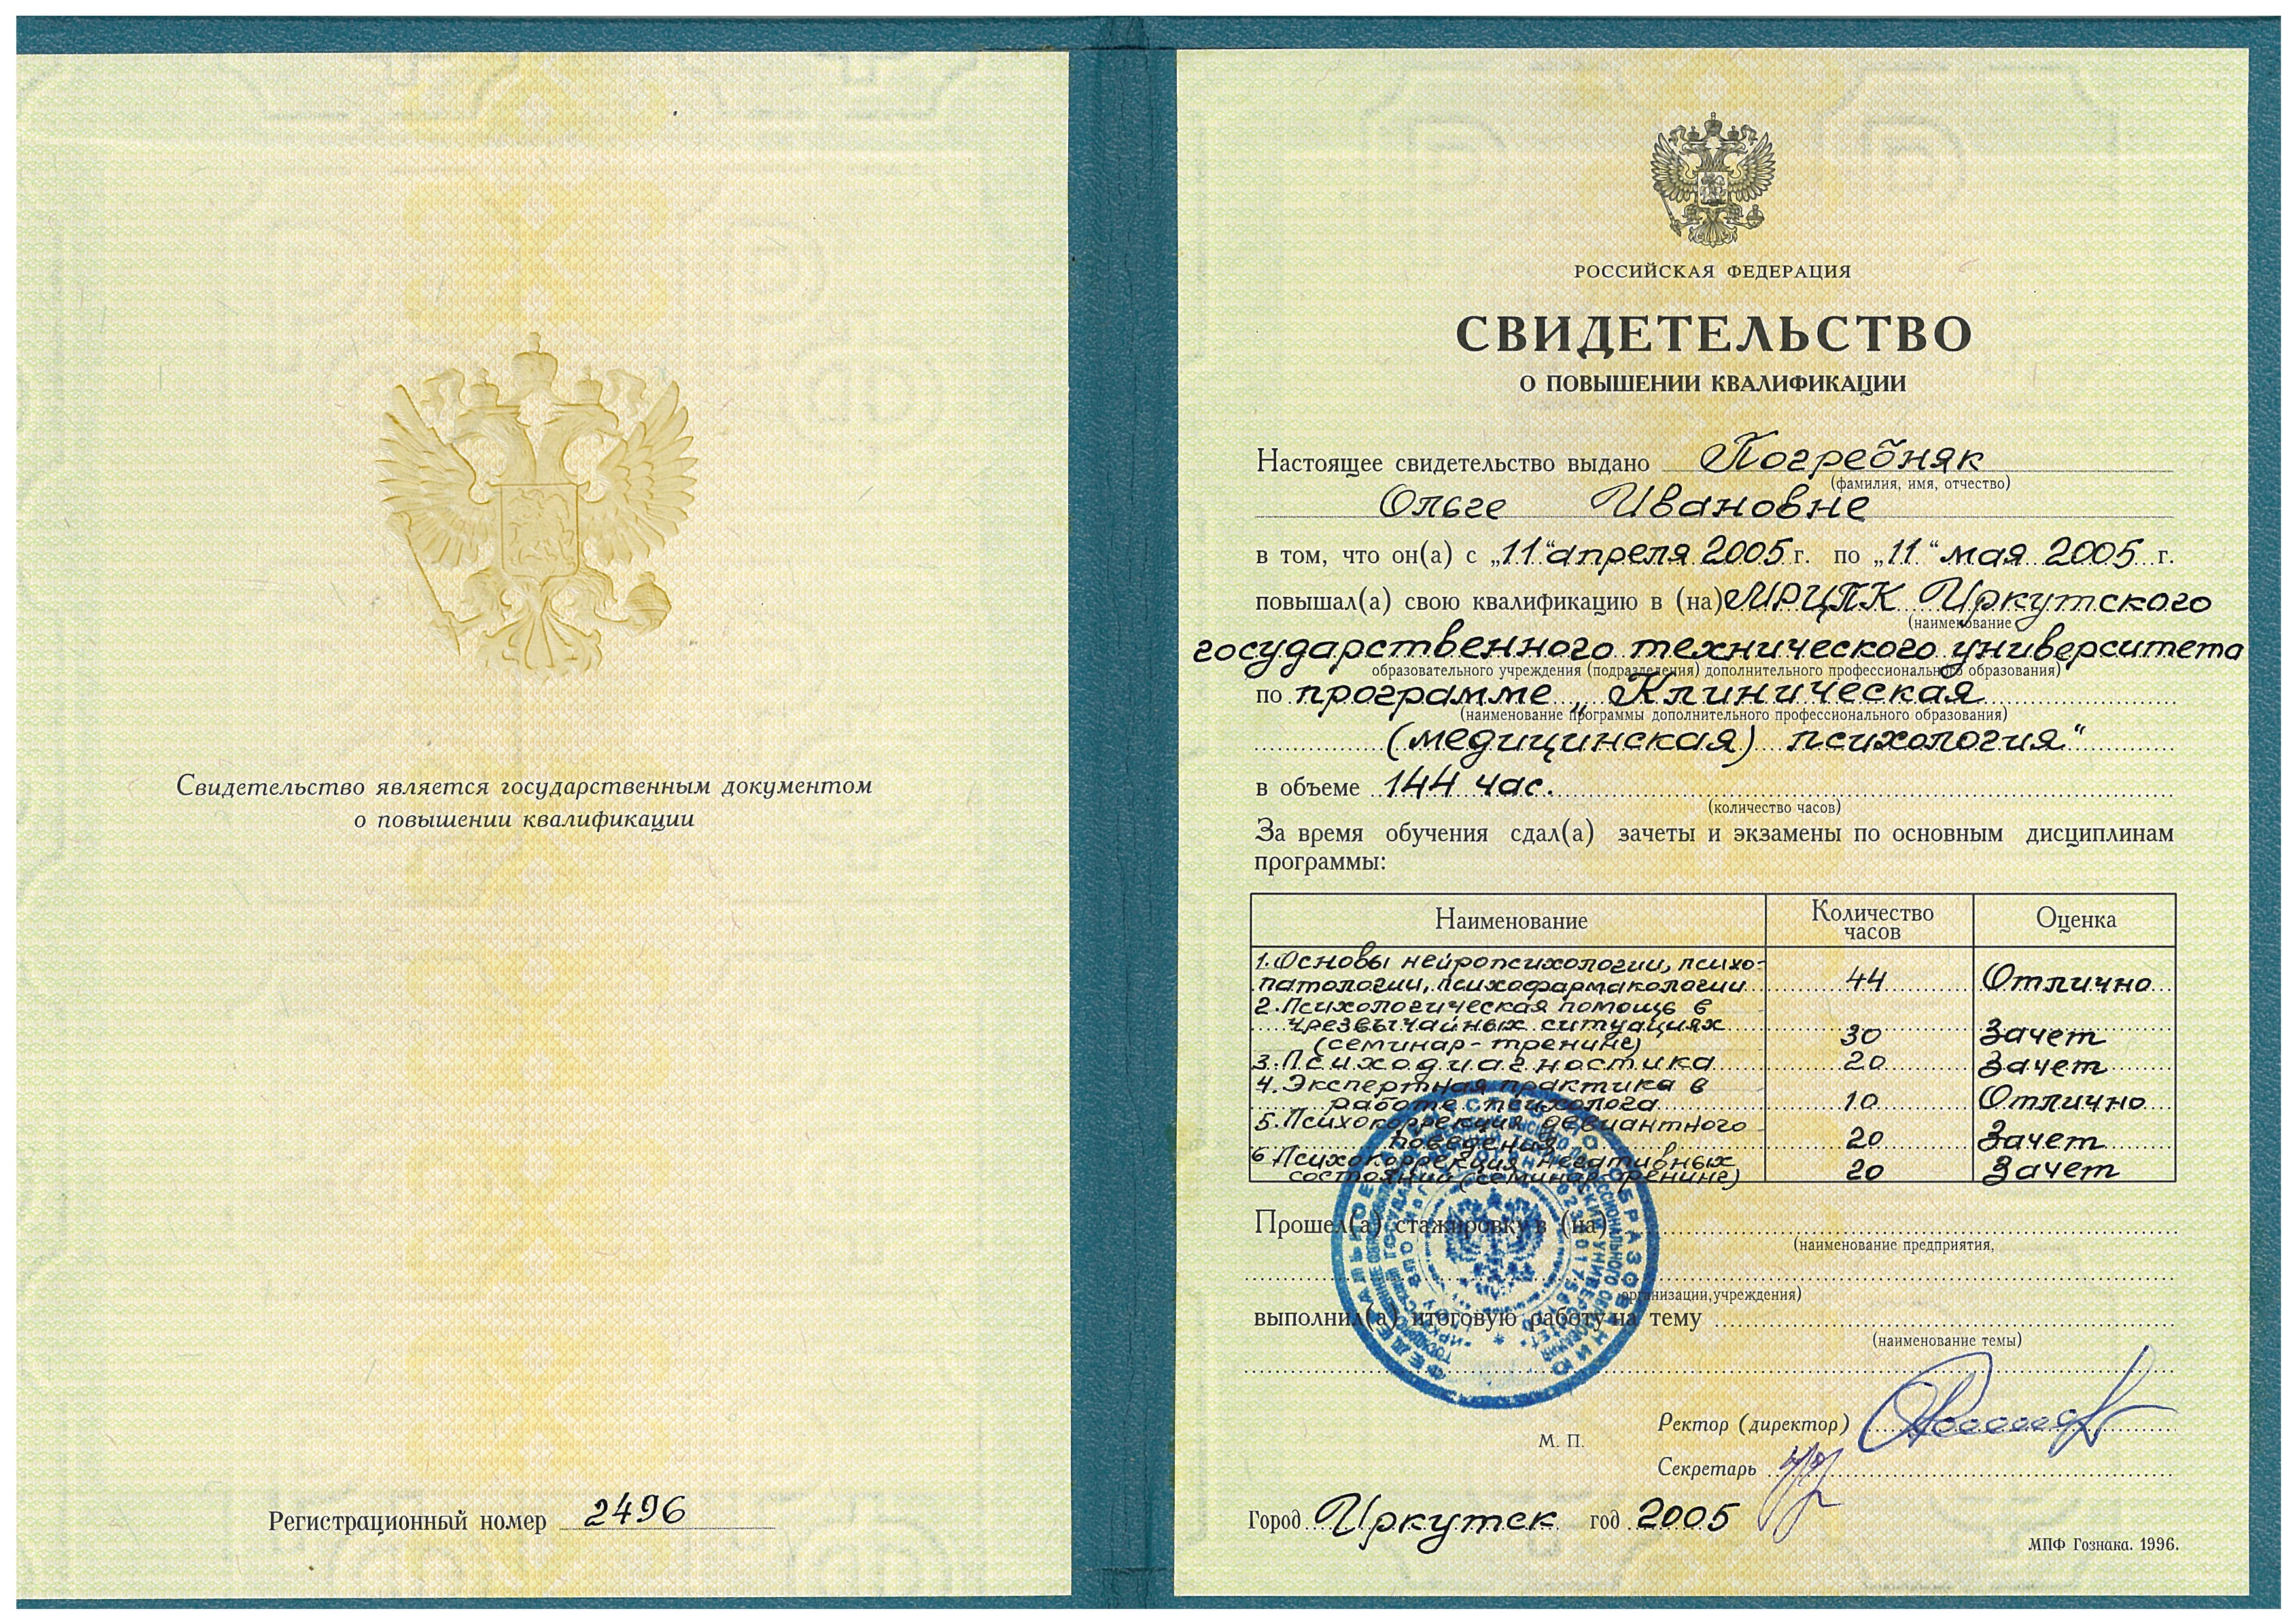 Свидетельство является государственным документом
о повышении квалификации
Регистрационный номер 2496
РОССИЙСКАЯ ФЕДЕРАЦИЯ
СВИДЕТЕЛЬСТВО
О ПОВЫШЕНИИ КВАЛИФИКАЦИИ
Настоящее свидетельство выдано Погребняк
(фамилия, имя, отчество)
Ольге Ивановне
в том, что он(а) с „11“ апреля 2005 г. по „11“ мая 2005 г.
повышал(а) свою квалификацию в (на) МРЦПК Иркутского
(наименование
государственного технического университета
образовательного учреждения (подразделения) дополнительного профессионального образования)
по программе „Клиническая
(наименование программы дополнительного профессионального образования)
(медицинская) психология“
в объеме 144 час.
(количество часов)
За время обучения сдал(а) зачеты и экзамены по основным дисциплинам
программы:
Наименование Количество часов Оценка
1. Основы нейропсихологии, психо-
патологии, психофармакологии 44 Отлично
2. Психологическая помощь в
чрезвычайных ситуациях
(семинар-тренинг) 30 Зачет
3. Психодиагностика 20 Зачет
4. Экспертная практика в
работе психолога 10 Отлично
5. Психокоррекция девиантного
поведения 20 Зачет
6 Психокоррекция негативных
состояний (семинар-тренинг) 20 Зачет
Прошел(а) стажировку в (на)
(наименование предприятия,
организации, учреждения)
выполнил(а) итоговую работу на тему
(наименование темы)
Ректор (директор)
М. П.
Секретарь
Город Иркутск год 2005
МПФ Гознака. 1996.